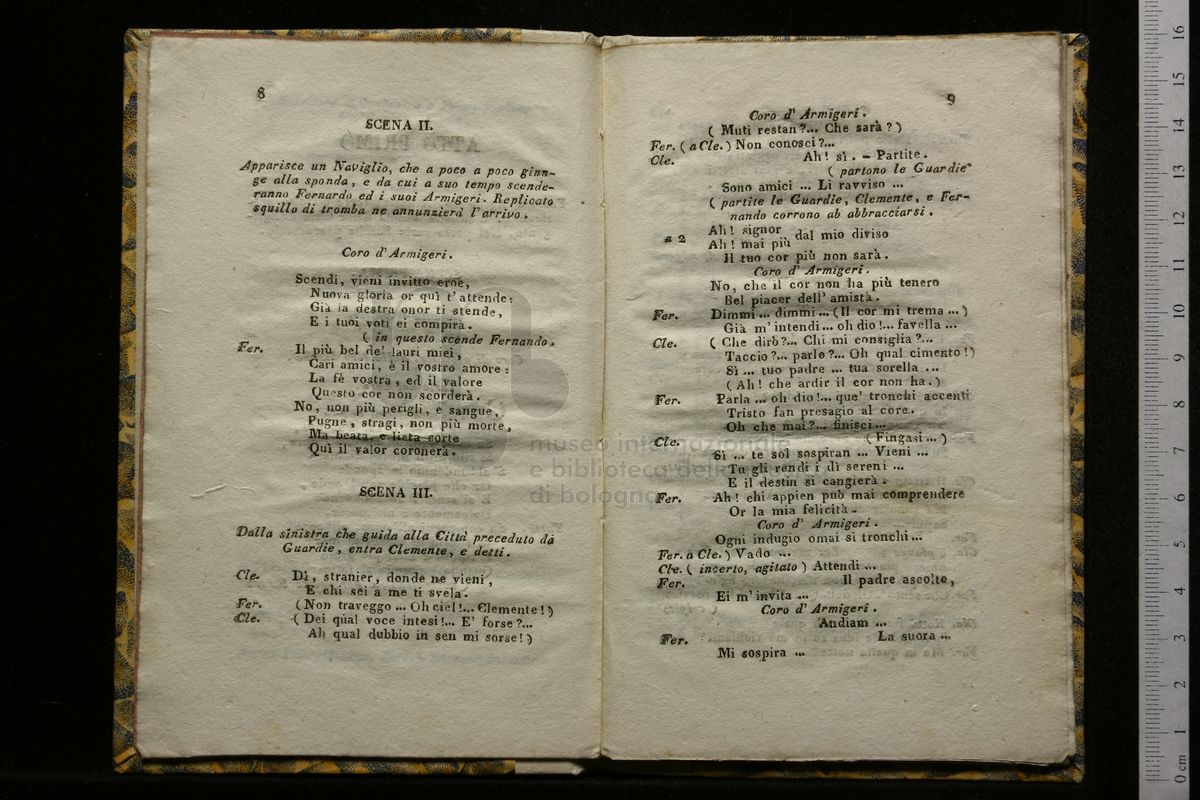 8
SCENA II.
Apparisce un Naviglio, che a poco a poco giun-
ge alla sponda, e da cui a suo tempo scende-
ranno Fernardo ed i suoi Armigeri. Replicato
squillo di tromba ne annunzierà l'arrivo.
Coro d'Armigeri.
Scendi, vieni invitto eroe,
Nuova gloria or quì t'attende:
Già la destra onor ti stende,
E i tuoi voti ei compira.
( in questo scende Fernando.
Fer. Il più bel de' lauri miei,
Cari amici, è il vostro amore:
La fè vostra, ed il valore
Questo cor non scorderà.
No, non più perigli, e sangue,
Pugne, stragi, non più morte,
Ma beata, e lieta sorte
Quì il valor coronerà.
SCENA III.
Dalla sinistra che guida alla Città preceduto da
Guardie, entra Clemente, e detti.
Cle. Dì, stranier, donde ne vieni,
E chi sei a me ti svela.
Fer. (Non traveggo ... Oh ciel!... Clemente!)
Cle. (Dei qual voce intesi!... E' forse?...
Ah qual dubbio in sen mi sorse!)
9
Coro d' Armigeri.
( Muti restan?... Che sarà?)
Fer. (a Cle.) Non conosci?...
Cle. Ah! sì. - Partite.
( partono le Guardie
Sono amici ... Li ravviso ...
( partite le Guardie, Clemente, e Fer-
nando corrono ab abbracciarsi.
a 2 Ah! signor
Ah! mai più dal mio diviso
Il tuo cor più non sarà.
Coro d' Armigeri.
No, che il cor non ha più tenero
Bel piacer dell' amistà.
Fer. Dimmi ... dimmi ... (Il cor mi trema ...)
Già m'intendi ... oh dio!... favella ...
Cle. ( Che dirò?... Chi mi consiglia?...
Taccio?... parlo?... Oh qual cimento!)
Sì ... tuo padre ... tua sorella ...
(Ah! che ardir il cor non ha.)
Fer. Parla ... oh dio!... que' tronchi accenti
Tristo fan presagio al core.
Oh che mai?... finisci ...
Cle. (Fingasi ...)
Sì ... te sol sospiran ... Vieni ...
Tu gli rendi i dì sereni ...
E il destin si cangierà.
Fer. Ah! chi appien può mai comprendere
Or la mia felicità.
Coro d' Armigeri.
Ogni indugio omai si tronchi ...
Fer. a Cle.) Vado ...
Cle. ( incerto, agitato ) Attendi ...
Fer. Il padre ascolto,
Ei m'invita ...
Coro d' Armigeri.
Andiam ...
Fer. La suora ...
Mi sospira ...
museo internazionale
e biblioteca della
di bologna
0 cm 1 2 3 4 5 6 7 8 9 10 11 12 13 14 15 16